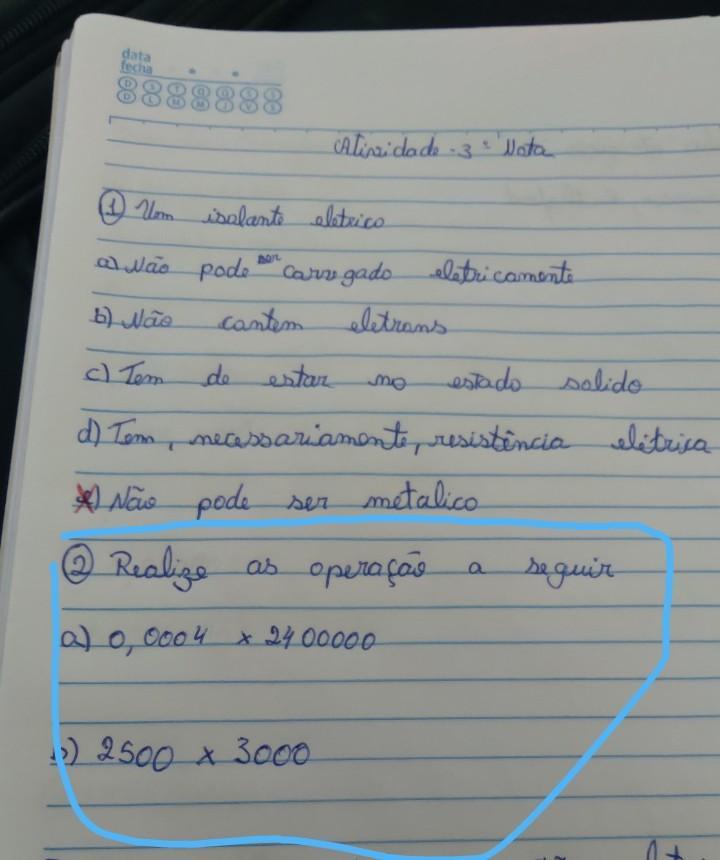 data
fecha
D S T Q Q S S
D L M M J V S
Atividade - 3ª Nota
① Um isolante eletrico
a) Não pode ser carregado eletricamente
b) Não cantem eletrans
c) Tem de estar no estado solido
d) Tem, necessariamente, resistência elétrica
e) Não pode ser metalico
② Realize as operação a seguir
a) 0,0004 x 2400000
b) 2500 x 3000